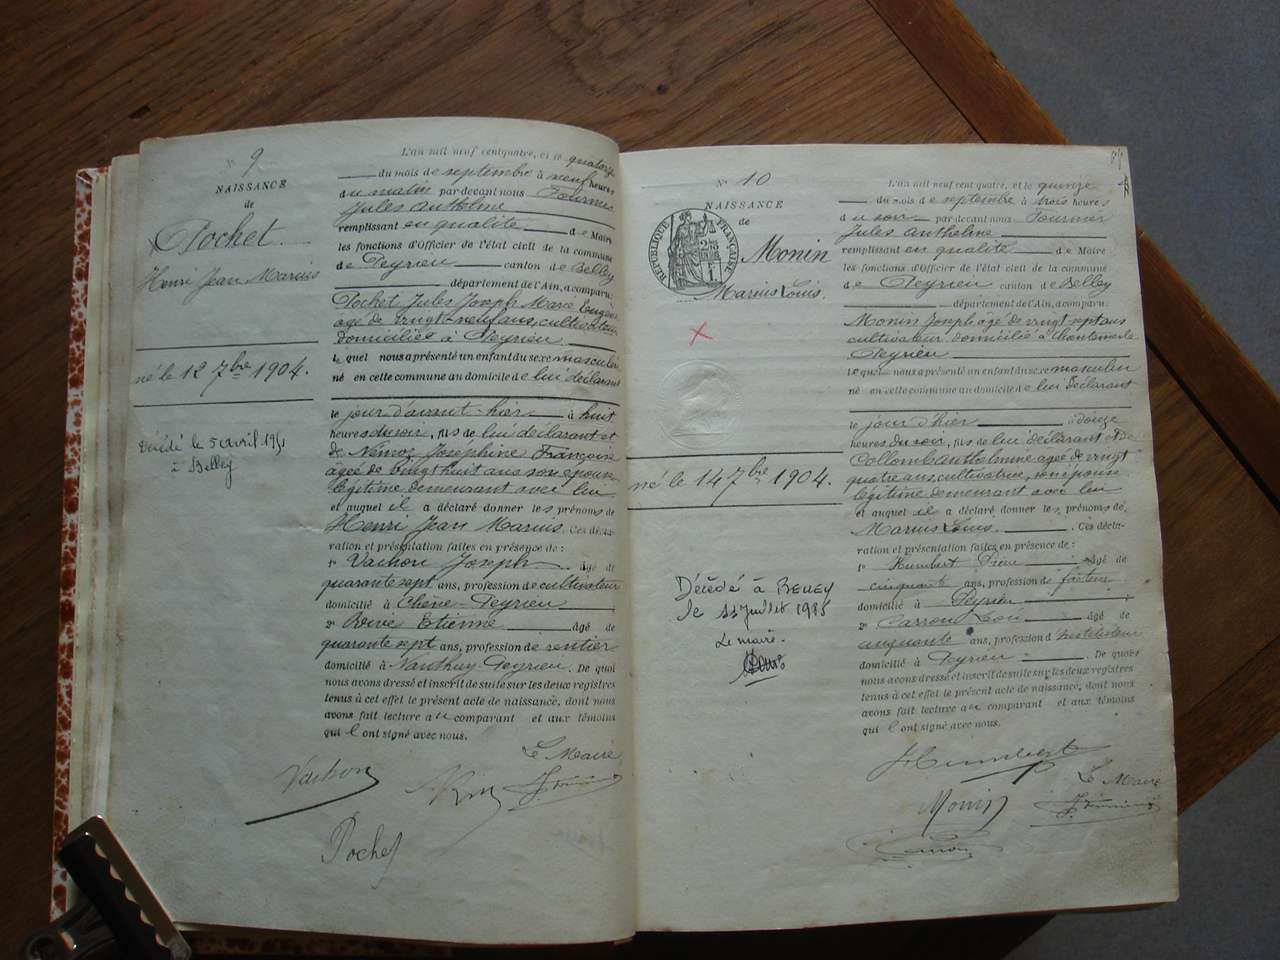 N° 9
NAISSANCE
de
Pochet
Henri Jean Marius
né le 12 7bre 1904.
Décédé le 5 avril 19
à Belley
L'an mil neuf cent quatre, et le quatorze
du mois de septembre à neuf heures
du matin par-devant nous Fournier
Jules Anthelme
remplissant en qualité de Maire
les fonctions d'Officier de l'état civil de la commune
de Peyrieu canton de Belley
département de l'Ain, a comparu:
Pochet Jules Joseph Marie Eugène
âgé de vingt-neuf ans, cultivateur
domicilié à Peyrieu
lequel nous a présenté un enfant du sexe masculin
né en cette commune au domicile de lui déclarant
le jour d'avant-hier à huit
heures du soir, fils de lui déclarant et
de Némoz Joséphine Françoise
âgée de vingt huit ans son épouse
légitime demeurant avec lui
et auquel il a déclaré donner les prénoms de
Henri Jean Marius. Ces décla-
ration et présentation faites en présence de:
1° Vachon Joseph âgé de
quarante sept ans, profession de cultivateur
domicilié à Chêne-Peyrieu
2° Etienne âgé de
quarante sept ans, profession de rentier
domicilié à Nanthuy-Peyrieu. De quoi
nous avons dressé et inscrit de suite sur les deux registres
tenus à cet effet le présent acte de naissance, dont nous
avons fait lecture au comparant et aux témoins
qui l ont signé avec nous.
Le Maire
Vachon
J. Fournier
Pochet
N° 10
NAISSANCE
de
RÉPUBLIQUE FRANÇAISE
Monin
Marius Louis.
né le 14 7bre 1904.
Décédé à BELLEY
le 11 juillet 1985
Le maire.
L'an mil neuf cent quatre, et le quinze
du mois de septembre à trois heures
du soir par-devant nous Fournier
Jules Anthelme
remplissant en qualité de Maire
les fonctions d'Officier de l'état civil de la commune
de Peyrieu canton de Belley
département de l'Ain, a comparu:
Monin Joseph âgé de vingt sept ans
cultivateur domicilié à Chantemerle
Peyrieu
lequel nous a présenté un enfant du sexe masculin
né en cette commune au domicile de lui déclarant
le jour d'hier à douze
heures du soir, fils de lui déclarant et de
Collomb Anthelmine âgée de vingt
quatre ans, cultivatrice, son épouse
légitime demeurant avec lui
et auquel il a déclaré donner les prénoms de
Marius Louis. Ces décla-
ration et présentation faites en présence de:
1° Humbert âgé de
cinquante ans, profession de facteur
domicilié à Peyrieu
2° âgé de
cinquante ans, profession d'instituteur
domicilié à Peyrieu. De quoi
nous avons dressé et inscrit de suite sur les deux registres
tenus à cet effet le présent acte de naissance, dont nous
avons fait lecture au comparant et aux témoins
qui l ont signé avec nous.
Humbert
Le Maire
Monin
J. Fournier